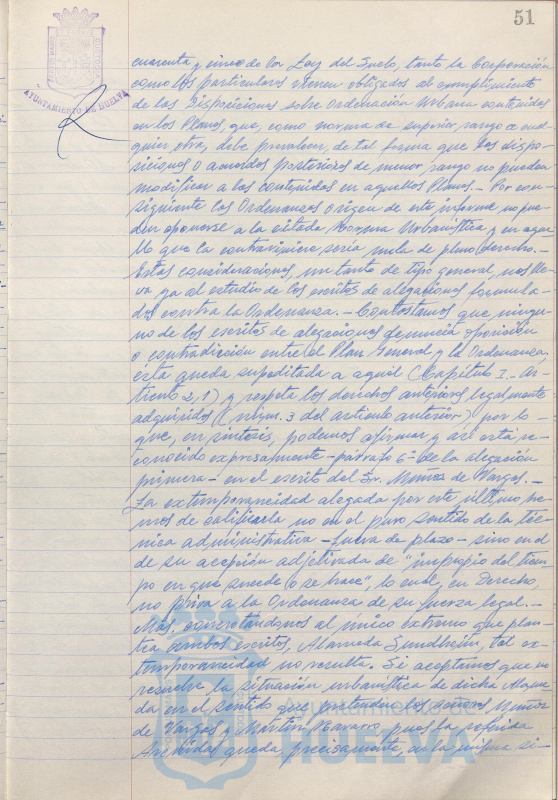 51
AYUNTAMIENTO DE HUELVA
cuarenta y cinco de la Ley del Suelo, tanto la Corporación
como los particulares vienen obligados al cumplimiento
de las disposiciones sobre Ordenación Urbana contenidas
en los Planes, que, como norma de superior rango a cual
quier otra, debe prevalecer, de tal forma que las dispo-
siciones o acuerdos posteriores de menor rango no pueden
modificar a las contenidas en aquellos Planes.- Por con-
siguiente las Ordenanzas origen de este informe no pue-
den oponerse a la citada Norma Urbanística y en aque
llo que la contraviniere sería nula de pleno derecho.-
Estas consideraciones, un tanto de tipo general, nos lle
va ya al estudio de los escritos de alegaciones formula-
dos contra la Ordenanza.- Constatamos que ningu-
no de los escritos de alegaciones denuncia oposición
o contradicción entre el Plan General y la Ordenanza,
ésta queda supeditada a aquél (Capítulo I.- Ar-
tículo 2, 1) y respeta los derechos anteriores legalmente
adquiridos (núm. 3 del artículo anterior) por lo
que, en síntesis, podemos afirmar y así está re-
conocido expresamente - párrafo 6º de la alegación
primera - en el escrito del Sr. Muñoz de Vargas.-
La extemporaneidad alegada por este último he-
mos de calificarla no en el puro sentido de la téc
nica administrativa - fuera de plazo - sino en el
de su acepción adjetivada de "impropio del tiem-
po en que sucede o se hace", lo cual, en Derecho,
no priva a la Ordenanza de su fuerza legal.-
Más, concretándonos al único extremo que plan-
tea ambos escritos, Alameda Sundheim, tal ex-
temporaneidad no resulta. Si aceptamos que no
resuelve la situación urbanística de dicha Alame-
da en el sentido que pretenden los señores Muñoz
de Vargas y Martín Navarro, pues la referida
Avenida queda, precisamente, en la misma si-
Ayuntamiento de
HUELVA